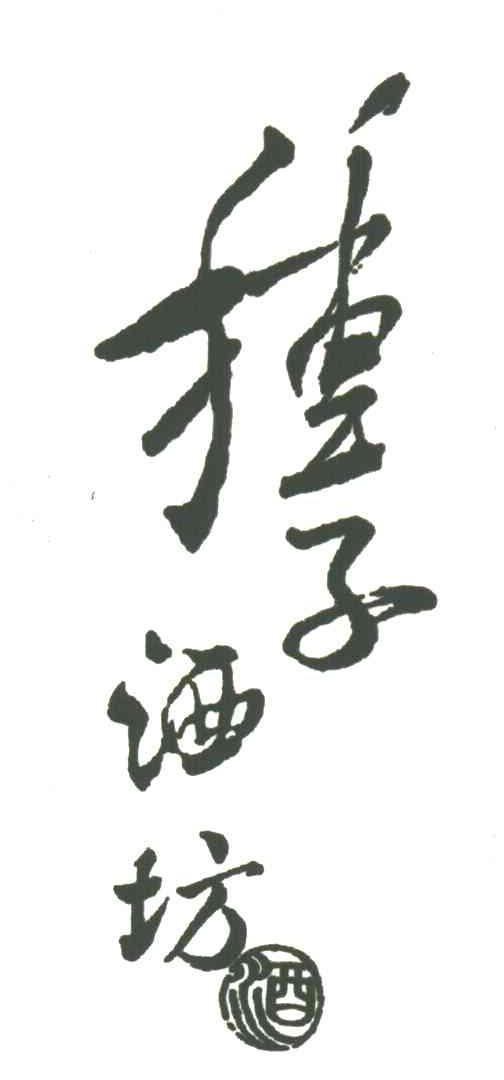 種子
酒坊
酒